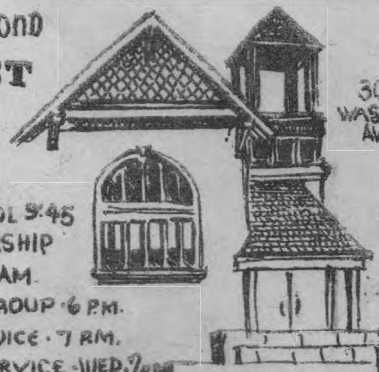 OND
ST
30
WAS
AV
OL 9:45
SHIP
AM.
ROUP · 6 P.M.
VICE · 7 P.M.
RVICE - WED. 7